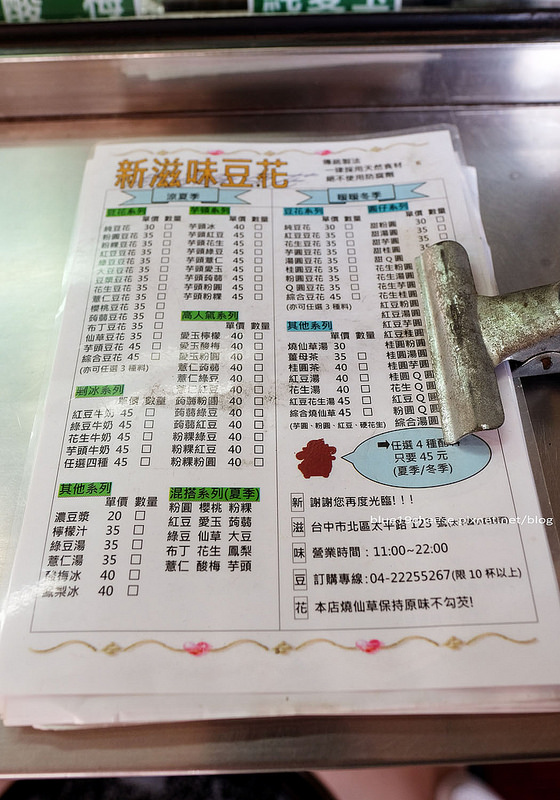 新滋味豆花
傳統製法
一律採用天然食材
絕不使用防腐劑
涼夏季
豆花系列 單價 數量
純豆花 30 □
粉圓豆花 35 □
粉粿豆花 35 □
紅豆豆花 35 □
綠豆豆花 35 □
大豆豆花 35 □
花生豆花 35 □
薏仁豆花 35 □
櫻桃豆花 35 □
蒟蒻豆花 35 □
布丁豆花 35 □
仙草豆花 35 □
芋頭豆花 45 □
綜合豆花 45 □
(亦可任選 3 種料)
芋頭系列 單價 數量
芋頭冰 40 □
芋頭紅豆 45 □
芋頭花生 45 □
芋頭綠豆 45 □
芋頭薏仁 45 □
芋頭愛玉 45 □
芋頭蒟蒻 45 □
芋頭粉圓 45 □
芋頭粉粿 45 □
高人氣系列
單價 數量
愛玉檸檬 40 □
愛玉酸梅 40 □
愛玉粉圓 40 □
薏仁蒟蒻 40 □
薏仁綠豆 40 □
薏仁紅豆 40 □
蒟蒻粉圓 40 □
蒟蒻綠豆 40 □
蒟蒻紅豆 40 □
粉粿綠豆 40 □
粉粿紅豆 40 □
粉粿粉圓 40 □
剉冰系列
單價 數量
紅豆牛奶 45 □
綠豆牛奶 45 □
花生牛奶 45 □
芋頭牛奶 45 □
任選四種 45 □
其他系列
單價 數量
濃豆漿 20 □
檸檬汁 35 □
綠豆湯 35 □
薏仁湯 35 □
酸梅冰 40 □
鳳梨冰 40 □
混搭系列(夏季)
粉圓 櫻桃 粉粿
紅豆 愛玉 蒟蒻
綠豆 仙草 大豆
布丁 花生 鳳梨
薏仁 酸梅 芋頭
暖暖冬季
豆花系列 單價 數量
純豆花 30 □
紅豆豆花 35 □
花生豆花 35 □
芋圓豆花 35 □
湯圓豆花 35 □
桂圓豆花 35 □
粉圓豆花 35 □
Q 圓豆花 35 □
綜合豆花 45 □
(亦可任選 3 種料)
其他系列
單價 數量
燒仙草湯 30 □
薑母茶 35 □
桂圓茶 40 □
紅豆湯 40 □
花生湯 40 □
紅豆花生湯 45 □
綜合燒仙草 45 □
(芋圓、粉圓、紅豆、硬花生)
圓仔系列 單價 數量
甜粉圓
甜湯圓
甜芋圓
甜桂圓
甜 Q 圓
花生粉圓
花生湯圓
花生芋圓
花生桂圓
紅豆粉圓
紅豆湯圓
紅豆芋圓
紅豆桂圓
桂圓湯圓
桂圓芋圓
桂圓 Q 圓
花生 Q 圓
紅豆 Q 圓
粉圓 Q 圓
綜合湯圓
➡任選 4 種配料
只要 45 元
(夏季/冬季)
新 謝謝您再度光臨!!!
滋 台中市北區太平路 123 號
味 營業時間：11:00~22:00
豆 訂購專線:04-22255267(限 10 杯以上)
花 本店燒仙草保持原味不勾芡!